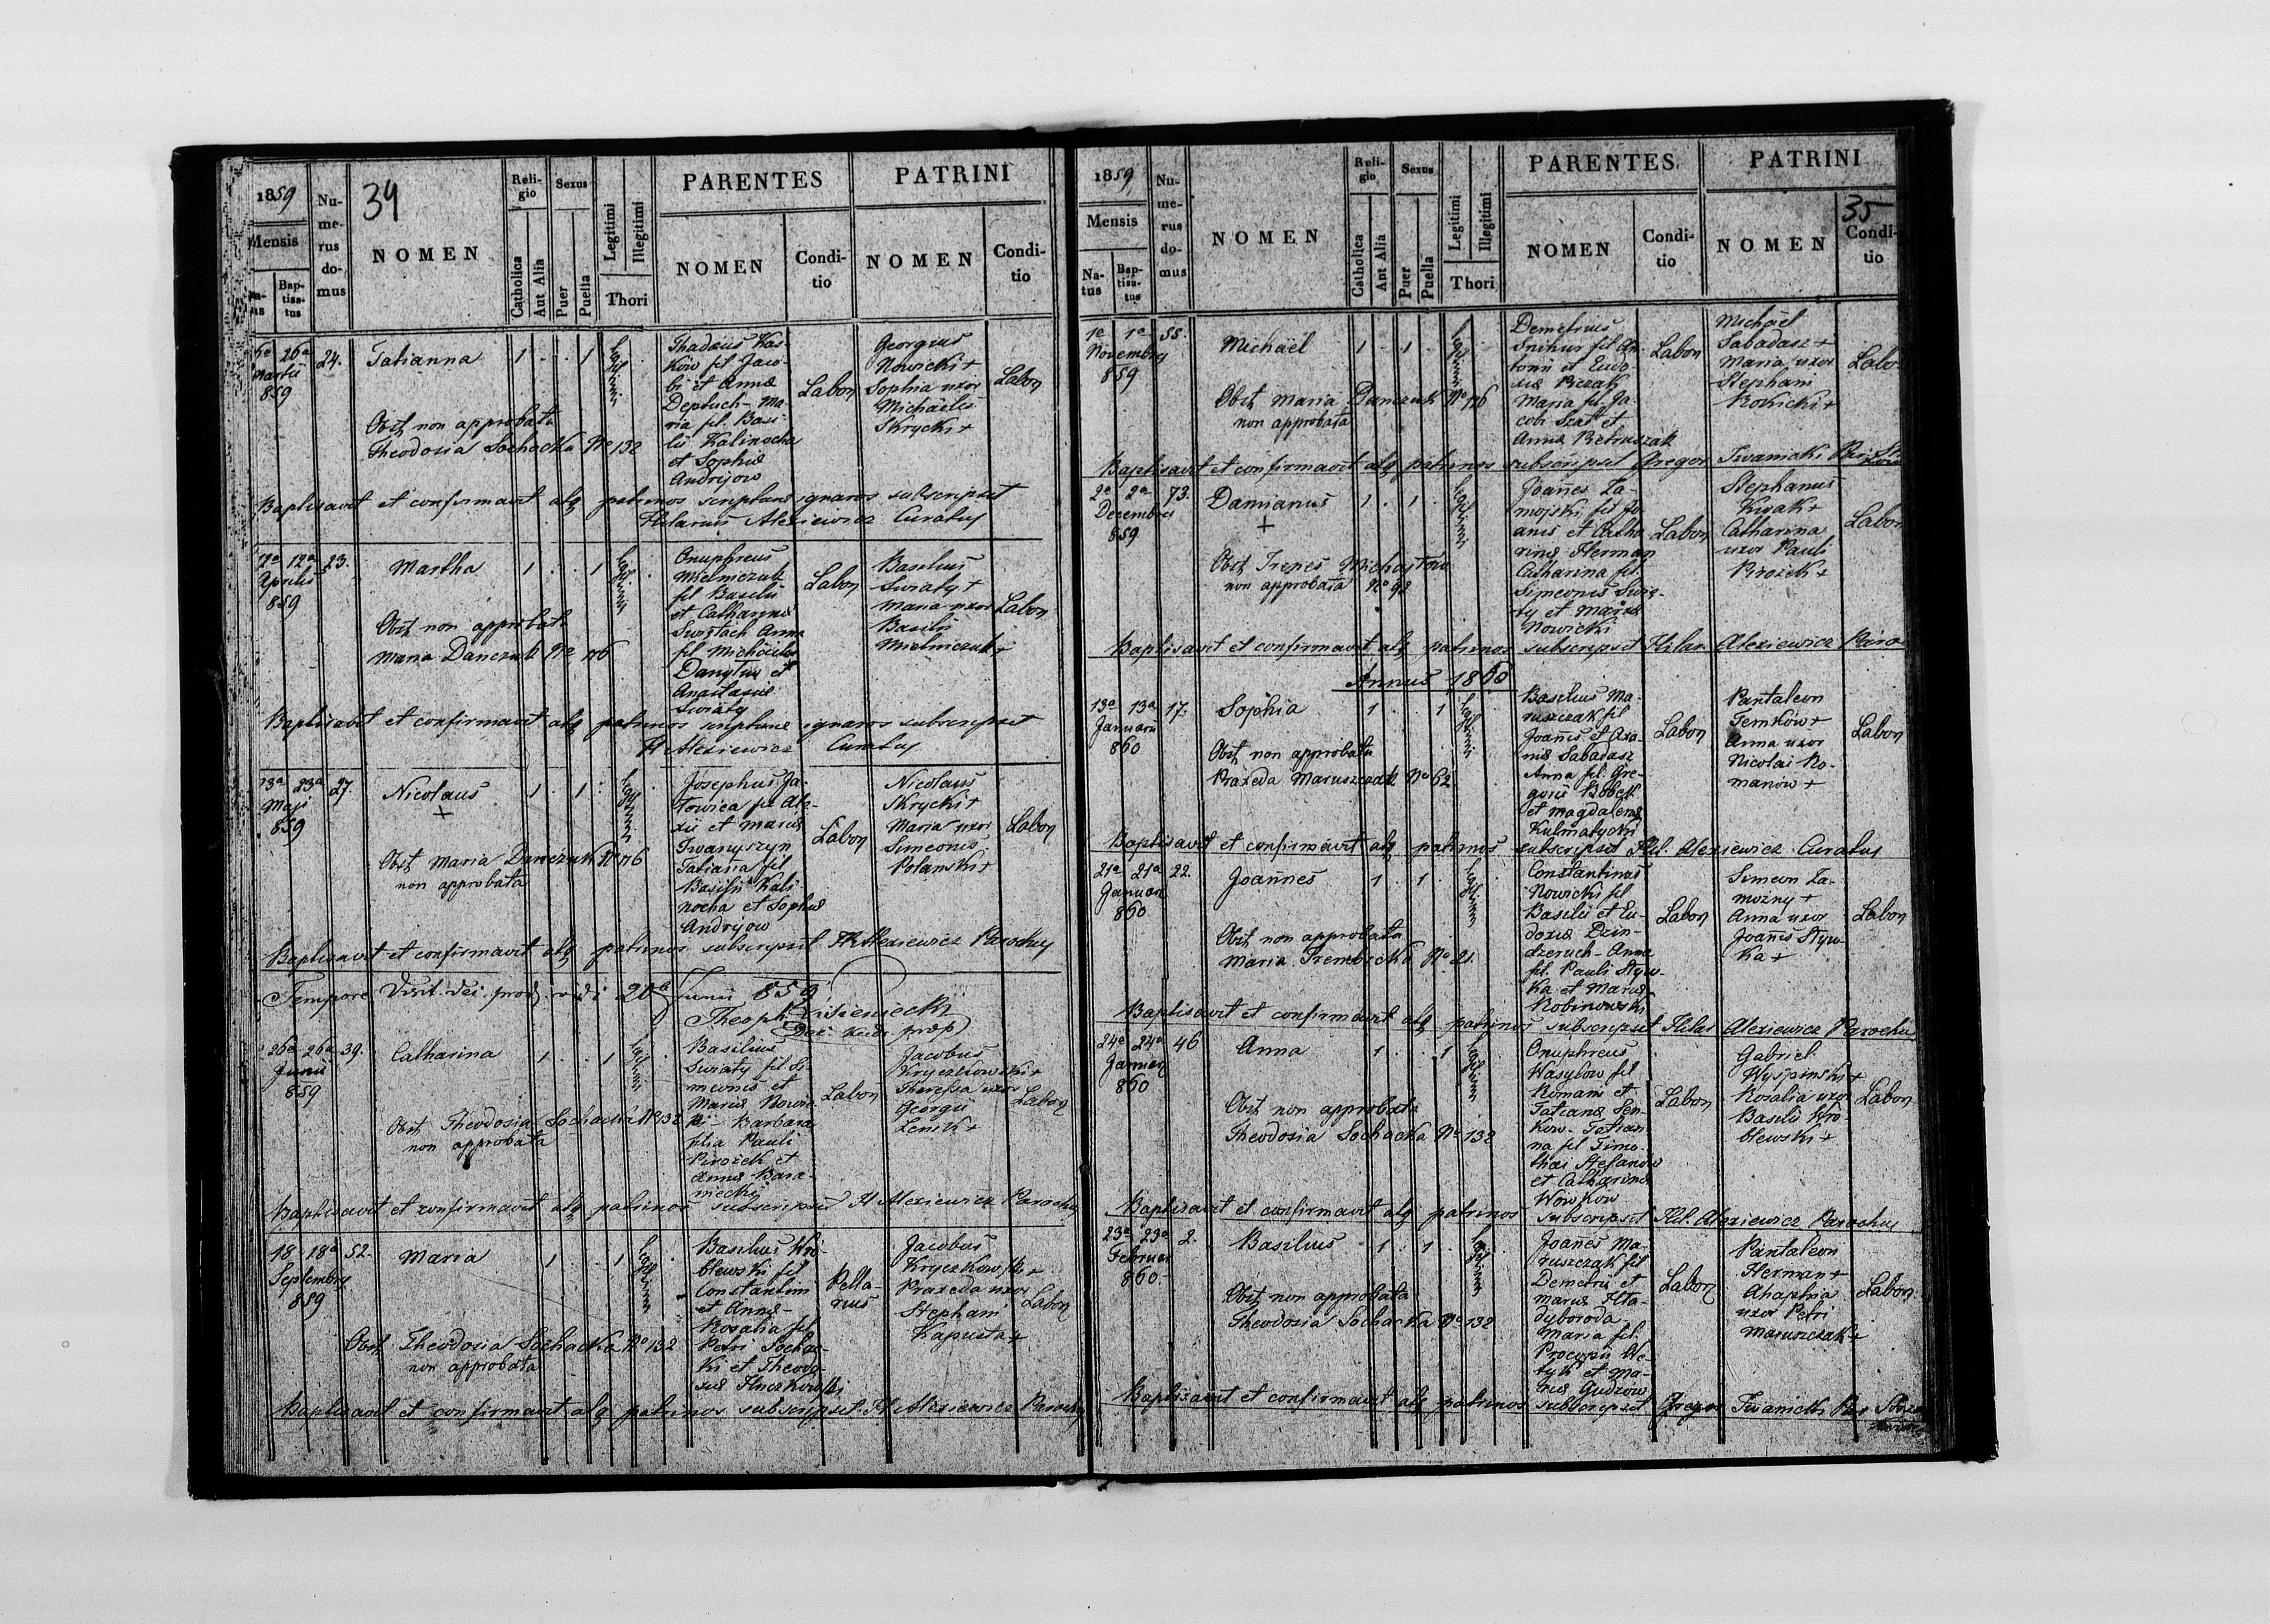 1859
Numerus domus
34
NOMEN
Religio
Sexus
Legitimi
Illegitimi
PARENTES
PATRINI
Mensis
Baptisatus
Catholica
Aut Alia
Puer
Puella
Thori
NOMEN
Conditio
NOMEN
Conditio
26a
Martii
859
24.
Tatianna
1 . . 1
Thadæus Kas-
ków fil Jaco-
bi et Annæ
Deptuch - Ma-
ria fil. Basi
lii Kalinocha
et Sophiæ
Andrijow
Labor
Georgius
Nowicki +
Sophia uxor
Michaëlis
Skrycki +
Labor
Obst non approbata
Theodosia Sochacka No 132
Baptisavit et confirmavit atq patrinos scripturæ ignaros subscripsit
Hilarius Alexiewicz Curatus
12a 12a
Aprilis
859
23.
Martha
1 . . 1
Onuphreus
Mielniczuk
fil Basilii
et Catharinæ
Anna
fil Michaëlis
et
Anastasiæ
Swiaty
Labor
Basilius
Swiaty +
Maria uxor
Basilii
Mielniczuk +
Labor
Obst non approbata
Maria Danczuk No 176
Baptisavit et confirmavit atq patrinos scripturæ ignaros subscripsit
H Alexiewicz Curatus
23a 23a
Maji
859
27.
Nicolaus
+
1 . 1 .
Josephus Ja-
towica fil Ale-
xii et Mariæ
Iwanyszyn
Tatiana fil
Basilii Kali
nocha et Sophiæ
Andrijow
Labor
Nicolaus
Skrycki +
Maria uxor
Simeonis
Polanski +
Labor
Obst Maria Danczuk No 176
non approbata
Baptisavit et confirmavit atq patrinos subscripsit H Alexiewicz Parochus
Tempore Visit. vidi 20 Junii 859
Theoph
26a 26a
Junii
859
39.
Catharina
1 . . 1
Basilius
Swiaty fil Si-
meonis et
Mariæ Nowic
ki - Barbara
filia Pauli
Pirozek et
Annæ Bara-
niecki
Labor
Jacobus
Kryczkowski +
Theressa uxor
Georgii
Lenik +
Labor
Obst Theodosia Sochacka No 132
non approbata
Baptisavit et confirmavit atq patrinos subscripsit H Alexiewicz Parochus
18 18a
Septembry
859
52.
Maria
1 . . 1
Basilius Wro-
blewski fil
Constantini
et Annæ -
Rosalia fil
Petri Sochac-
ki et Theodo-
siæ Huczkowski
Pella-
rius
Jacobus
Kryczkowski +
Praxeda uxor
Stephani
Kapusta +
Labor
Obst Theodosia Sochacka No 132
non approbata
Baptisavit et confirmavit atq patrinos subscripsit H Alexiewicz Parochus
1859
Numerus domus
NOMEN
Religio
Sexus
Legitimi
Illegitimi
PARENTES
PATRINI
35
Mensis
Natus
Baptisatus
Catholica
Aut Alia
Puer
Puella
Thori
NOMEN
Conditio
NOMEN
Conditio
1a 1a
Novembry
859
55.
Michäel
1 . 1 .
Demetrius
fil An-
tonii et Eudo-
xiæ
Maria fil. Ja-
cobi Szat et
Annæ Petruszak
Labor
Michäel
Sabadasz +
Maria uxor
Stephani
Rokicki +
Labor
Obst Maria Danczuk No 176
non approbata
Baptisavit et confirmavit atq patrinos subscripsit Gregor Iwanicki
2a 2a
Decembris
859
73.
Damianus
+
1 . 1 .
Joañes Za-
mojski fil Jo-
anis et Catha
rinæ Herman
Catharina fil.
Simeonis Swia-
ty et Mariæ
Nowicki
Labor
Stephanus
Kujak +
Catharina
uxor Pauli
Pirozek +
Labor
Obst Irenes Michajlow
non approbata No 92
Baptisavit et confirmavit atq patrinos subscripsit Hilar. Alexiewicz Paro
Annus 1860
13a 13a
Januarii
860
17.
Sophia
1 . . 1
Basilius Ma-
ruszczak fil
Joañis et Axa-
niæ Sabadasz
Anna fil. Gre-
gorii Bobek
et Magdalenæ
Kulmatycki
Labor
Pantaleon
Temków +
Anna uxor
Nicolai Ro-
manów +
Labor
Obst non approbata
Praxeda Maruszczak No 62
Baptisavit et confirmavit atq patrinos subscripsit Hil. Alexiewicz Curatus
21a 21a
Januar
860
22.
Joannes
1 . 1 .
Constantinus
Nowicki fil
Basilii et Eu-
doxiæ Dzin-
dzeruch - Anna
fil. Pauli Styw-
ka et Mariæ
Robinowski
Labor
Simeon Za-
mozny +
Anna uxor
Joañis Styw-
ka +
Labor
Obst non approbata
Maria Trembicka No 21.
Baptisavit et confirmavit atq patrinos subscripsit Hilar Alexiewicz Parochus
24a 24a
Januar
860
46
Anna
1 . . 1
Onuphreus
Wasylow fil
Romani et
Tatianæ Sen-
kow - Tatian-
na fil Timo-
thæi Stefanów
et Catharinæ
Wowkow
Labor
Gabriel
Wyspinski +
Rosalia uxor
Basilii Wro-
blewski +
Labor
Obst non approbata
Theodosia Sochacka No 132
Baptisavit et confirmavit atq patrinos subscripsit Hil. Alexiewicz Parochus
23a 23a
Februar
860
2.
Basilius
1 . 1 .
Joañes Ma-
ruszczak fil
Demetrii et
Mariæ Hla-
dyboroda
Maria fil.
Procopii We-
tyk et Ma-
riæ Gudzow
Labor
Pantaleon
Herman +
Ahaphia
uxor Petri
Maruszczak +
Labor
Obst non approbata
Theodosia Sochacka No 132
Baptisavit et confirmavit atq patrinos subscripsit Gregor Iwanicki Par